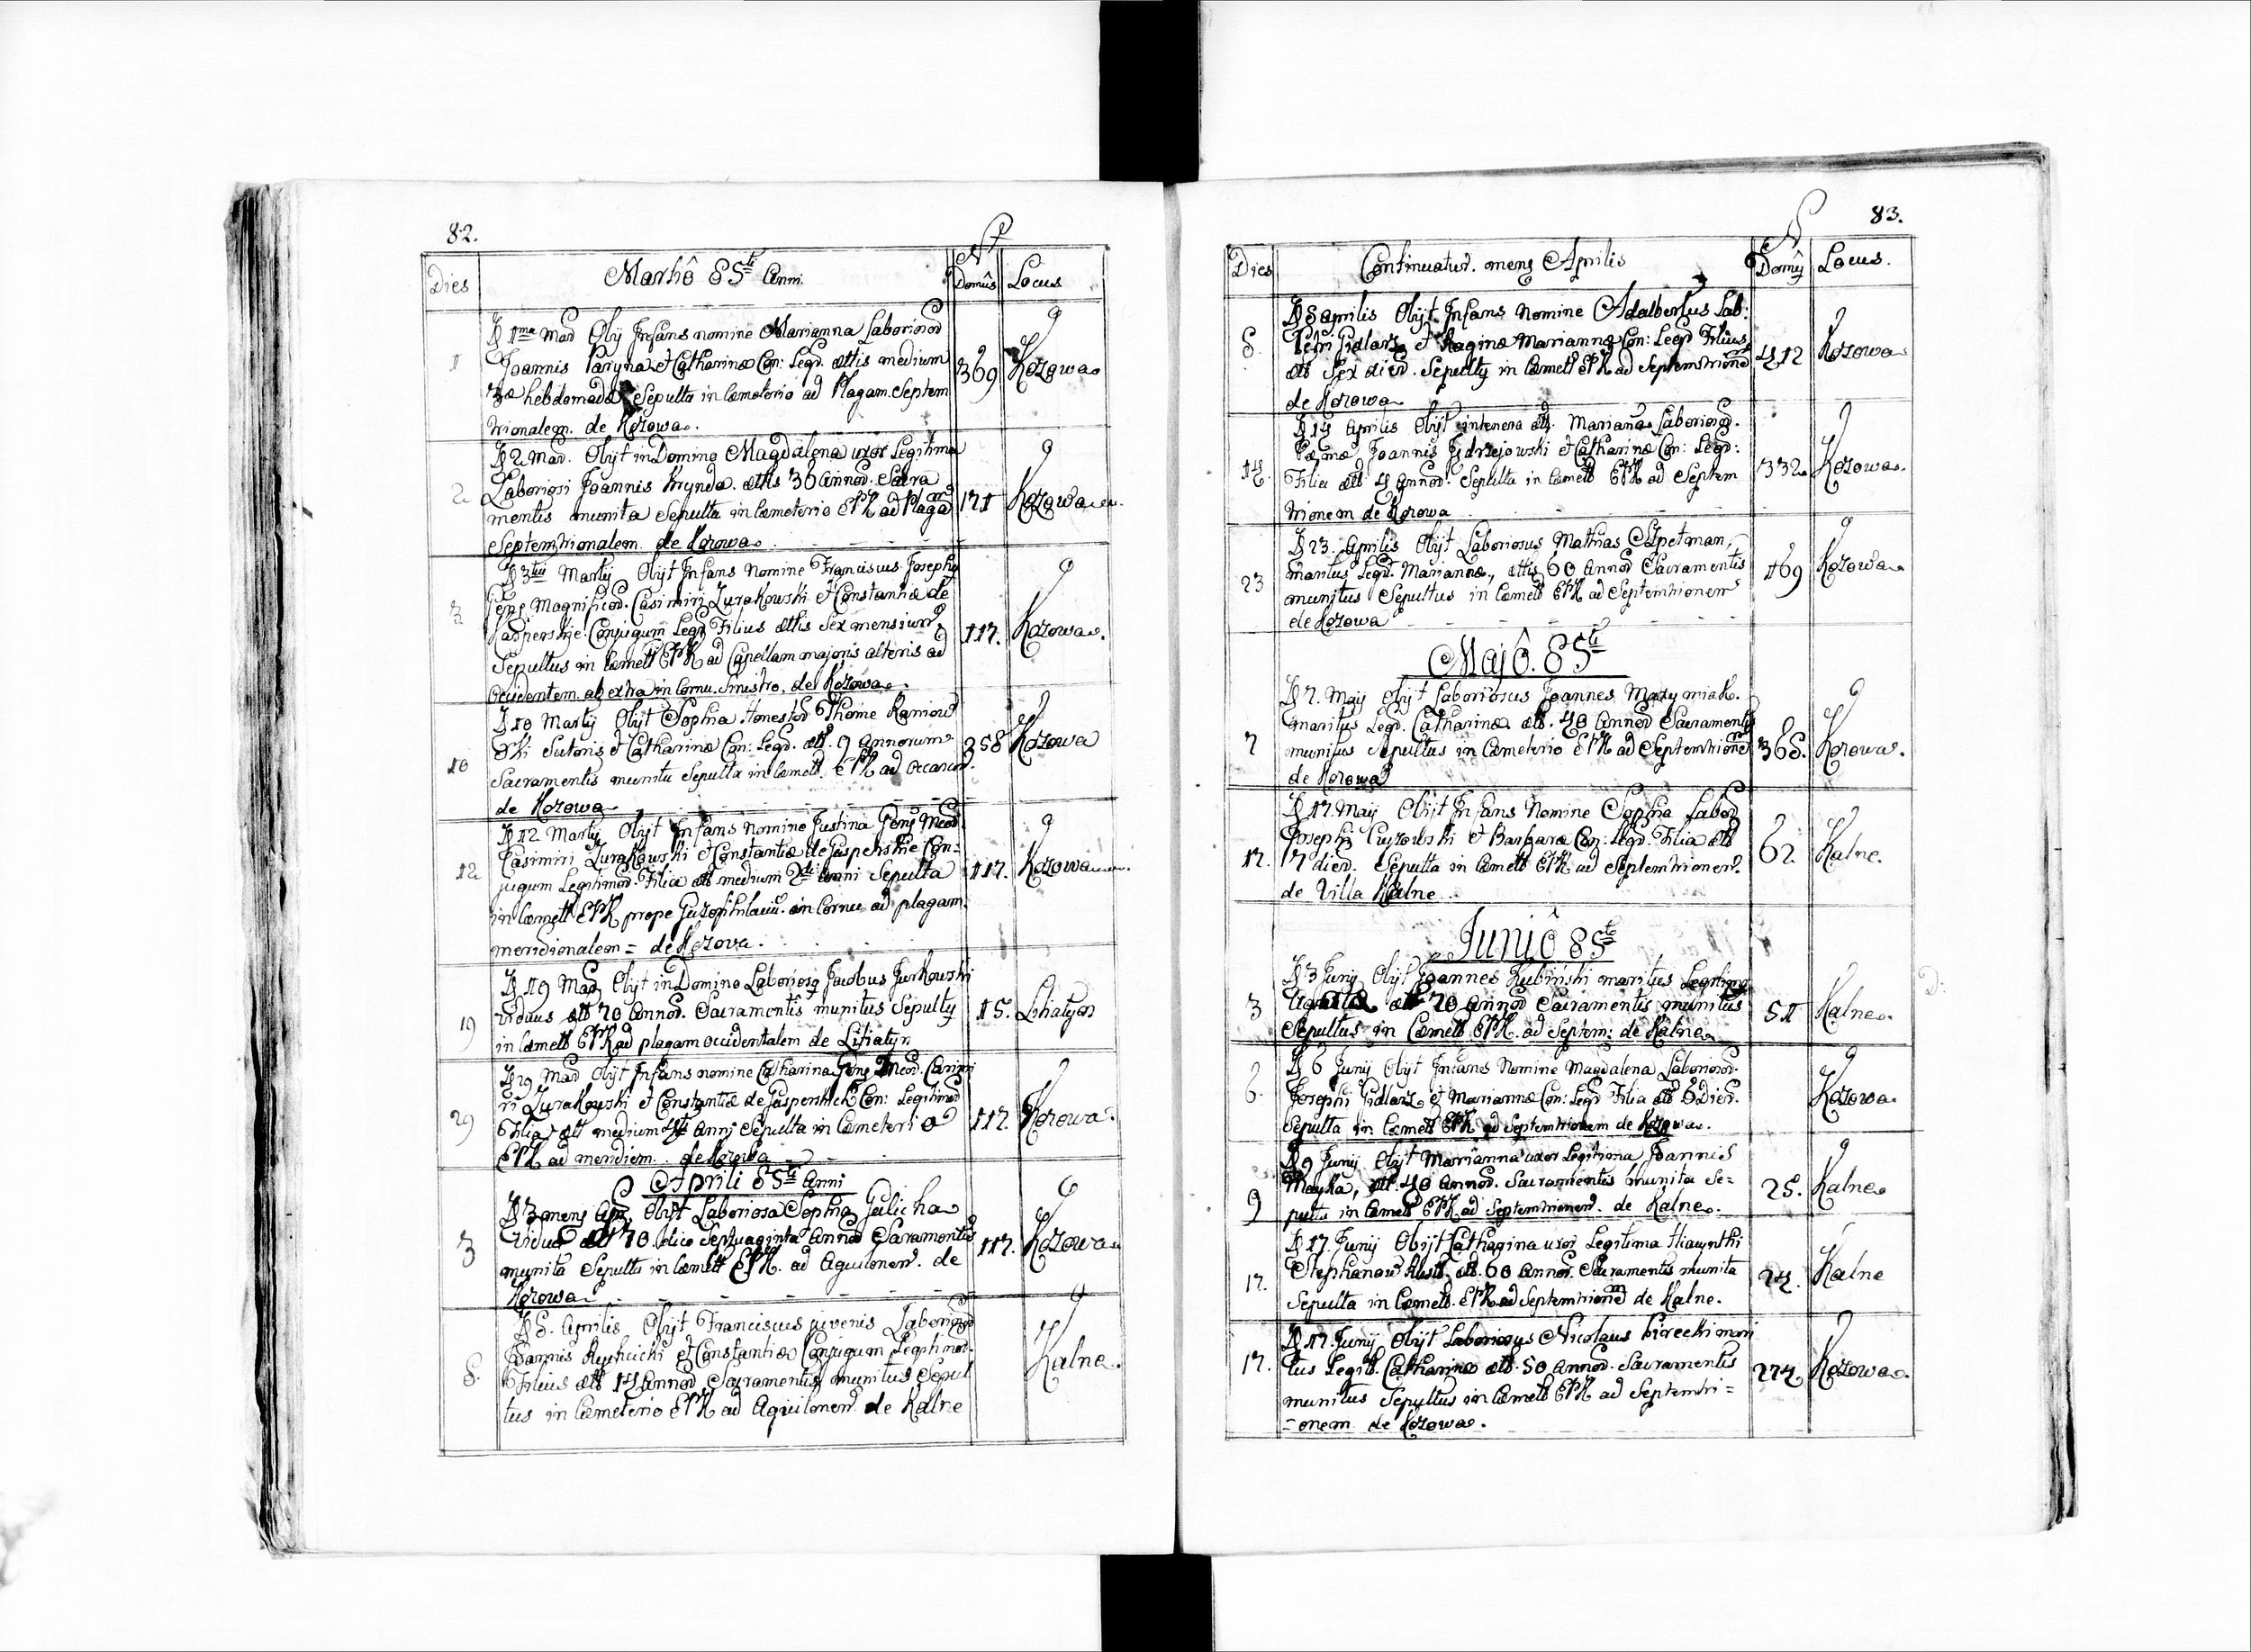 82.
Dies
Martiô 85ti Anni
N
Domûs
Locus
1
D 1ma Mar Obij Infans nomine Marianna Laboriosor
Joannis Paryna et Catharinæ Con: Legr. ættis medium
3æ hebdomadæ Sepulta in Cæmeterio ad Plagam Septem
trionalem. de Kozowa.
369
Kozowa
2
D 2 Mar. Obijt in Domino Magdalena uxor Legitima
Laboriosi Joannis Krynda. ættis 36 annor. Sacra
mentis munita Sepulta in Cæmeterio EPK ad Plagam
Septemtrionalem de Kozowa.
171
Kozowa
3
D 3tii Martij Obijt Infans Nomine Franciscus Josephus
Gens Magnificor. Casimiri Zurakowski et Constantiæ de
Conjugum Legr Filius ættis Sex mensium
Sepultus in Cæmett EPK ad Capellam majoris alteris ad
Occidentem ab extra in Cornu Sinistro. de Kozowa.
117.
Kozowa.
10
D 10 Martij Obijt Sophia Honestor Thome Raniow
ski Sutoris et Catharinæ Con: Legr. ætt. 9 Annorum
Sacramentis munita Sepulta in Cæmett. EPK ad Occasum.
de Kozowa
358
Kozowa
12
D 12 Martij Obijt Infans nomine Justina Gens
Casimiri Zurakowski et Constantiæ de Con:
jugum Legitimor. Filia ætt medium 2di Anni Sepulta
in Cæmett EPK prope in Cornu ad plagam
meridionalem = de Kozowa.
117.
Kozowa
19
D 19 Mar Obijt in Domino Laborios Jacobus Jurkowski
viduus ætt 70 Annor. Sacramentis munitus Sepultus
in Cæmett EPK ad plagam occidentalem de Litiatyn
15.
Litiatyn
29
D 29 Mar Obijt Infans nomine Catharina Gens Casimi
ri Zurakowski et Constantiæ de Con: Legitimor
Filia ætt medium 4ti Anni Sepulta in Cæmeterio
EPK ad meridiem. de Kozowa
117
Kozowa.
Aprili 85ti Anni
3
D 3 mens Apr. Obijt Laboriosa Sophia Gulicha
Vidua ætt 70 dico Septuaginta Annor Sacramentis
munita Sepulta in Cæmett EPK. ad Aquilonem. de
Kozowa
117.
Kozowa
8.
D 8. Aprilis Obijt Franciscus juvenis Laboriosor
Joannis et Constantiæ Conjugum Legitimor.
Filius ætt 14 Annor Sacramentis munitus Sepul
tus in Cæmeterio EPK ad Aquilonem. de Kalne
Kalne.
83.
Dies
Continuatur. mens Aprilis
N
Domûs
Locus.
8.
D 8 Aprilis Obijt Infans Nomine Adalbertus Lab:
Petri Gidlarz et Mariannæ Con: Legr Filius
ætt Sex dier. Sepultus in Cæmett EPK ad Septemtrione
de Kozowa
412
Kozowa
14.
D 14 Aprilis Obijt in tenera ætt. Marianna Laborioso.
Joannis Jedrzejowski et Catharinæ Con: Legr:
Filia ætt 4 Annor. Sepulta in Cæmett EPK ad Septem
trionem de Kozowa
332
Kozowa.
23
D 23. Aprilis Obijt Laboriosus Mathias Szpetman,
maritus Legr. Mariannæ, ættis 60 Annor Sacramentis
munitus Sepultus in Cæmett EPK ad Septemtrionem
de Kozowa
169
Kozowa
Majô. 85ti
7
D 7. Maij Obijt Laboriosus Joannes Maxymiak.
maritus Legr. Catharinæ ætt. 40 Annor Sacramentis
munitus Sepultus in Cæmeterio EPK ad Septemtrione
de Kozowa
368.
Kozowa.
17.
D 17. Maij Obijt Infans Nomine Sophia Labor
Josephi et Barbaræ Con: Legr. Filia ætt
17 dier. Sepulta in Cæmett EPK ad Septemtrionem.
de Villa Kalne
62.
Kalne.
Juniô 85ti
3
D 3 Junij Obijt Joannes Rubiński maritus Legitimæ
Agathæ ætt 70 Annor Sacramentis munitus
Sepultus in Cæmett EPK. ad Septem: de Kalne
51
Kalne.
6.
D 6 Junij Obijt Infans Nomine Magdalena Laboriosor
Josephi Gidlarz et Mariannæ Con: Legr Filia ætt 6 Dier.
Sepulta in Cæmett EPK ad Septemtrionem de Kozowa.
Kozowa
9
D 9 Junij Obijt Marianna uxor Legitima Joannis
Mayka, ætt. 40 Annor. Sacramentis munita Se=
pulta in Cæmett EPK ad Septemtrionem. de Kalne.
25.
Kalne
17.
D 17. Junij Obijt Catharina uxor Legitima Hiacynthi
Stephanow ætt. 60 Annor. Sacramentis munita
Sepulta in Cæmett. EPK ad Septemtrione de Kalne.
24.
Kalne
17.
D 17. Junij Obijt Laboriosus Nicolaus Górecki mari
tus Legitt. Catharinæ ætt. 50 Annor. Sacramentis
munitus Sepultus in Cæmett EPK ad Septemtri=
=onem de Kozowa.
274
Kozowa.